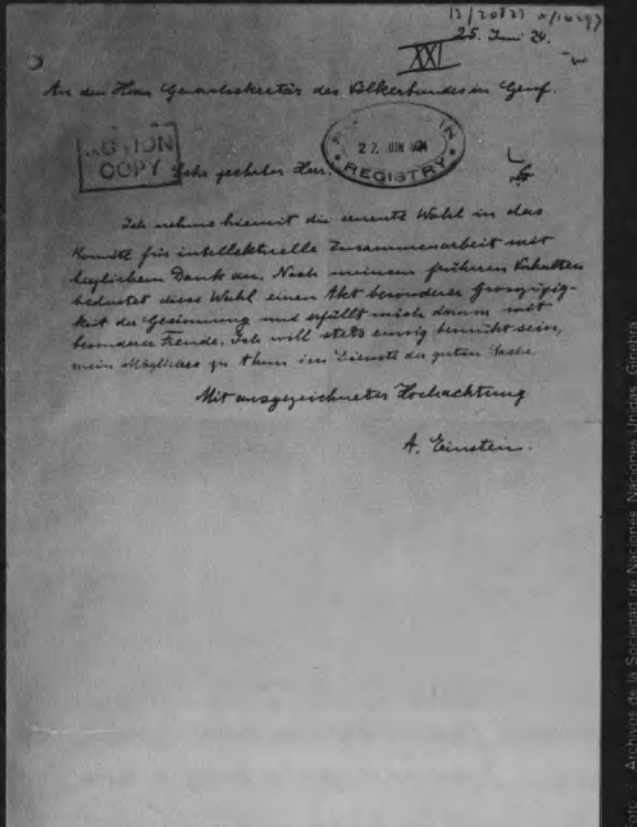 13/20823
25. Juni 24.
XXI
An den Herrn Generalsekretär des Völkerbundes in Genf.
ACTION
COPY
REGISTRY
Sehr geehrter Herr.
Ich nehme hiemit die erneute Wahl in das
Komité für intellektuelle Zusammenarbeit mit
herzlichem Dank an. Nach meinem früheren Verhalten
bedeutet diese Wahl einen Akt besonderer Groszügig-
keit der Gesinnung und erfüllt mich darum mit
besonderer Freude. Ich will stets eifrig bemüht sein,
mein Mögliches zu thun im Dienste der guten Sache.
Mit ausgezeichneter Hochachtung
A. Einstein.
Archivos de la Sociedad de Naciones, Naciones Unidas, Ginebra